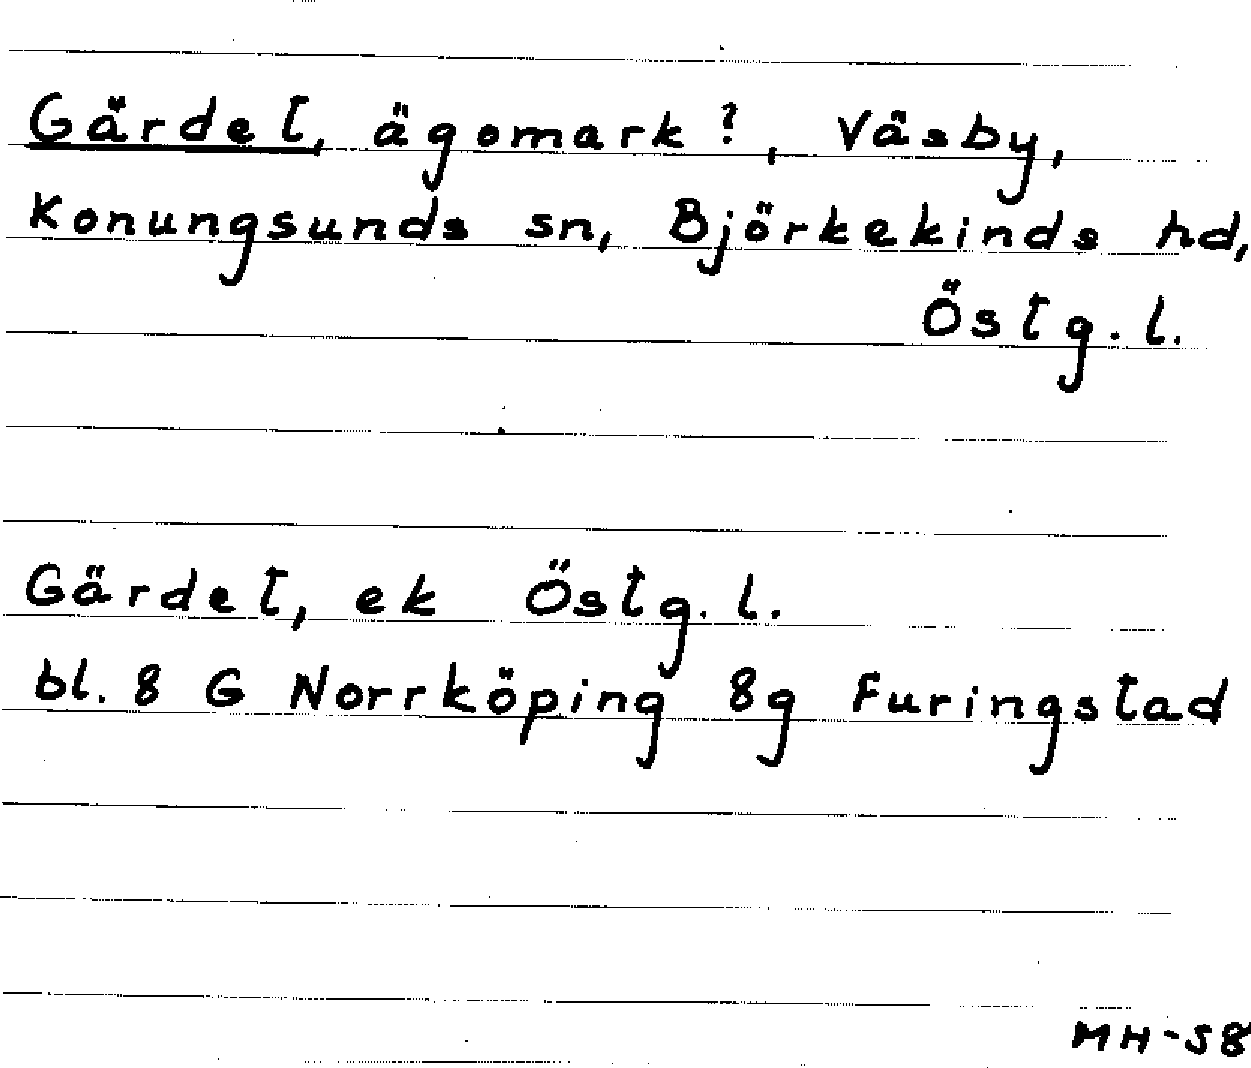 Gärdet, ägomark?, Väsby,
Konungsunds sn, Björkekinds hd,
Östg. l.
Gärdet, ek Östg. l.
bl. 8 G Norrköping 8g Furingstad
MH-58